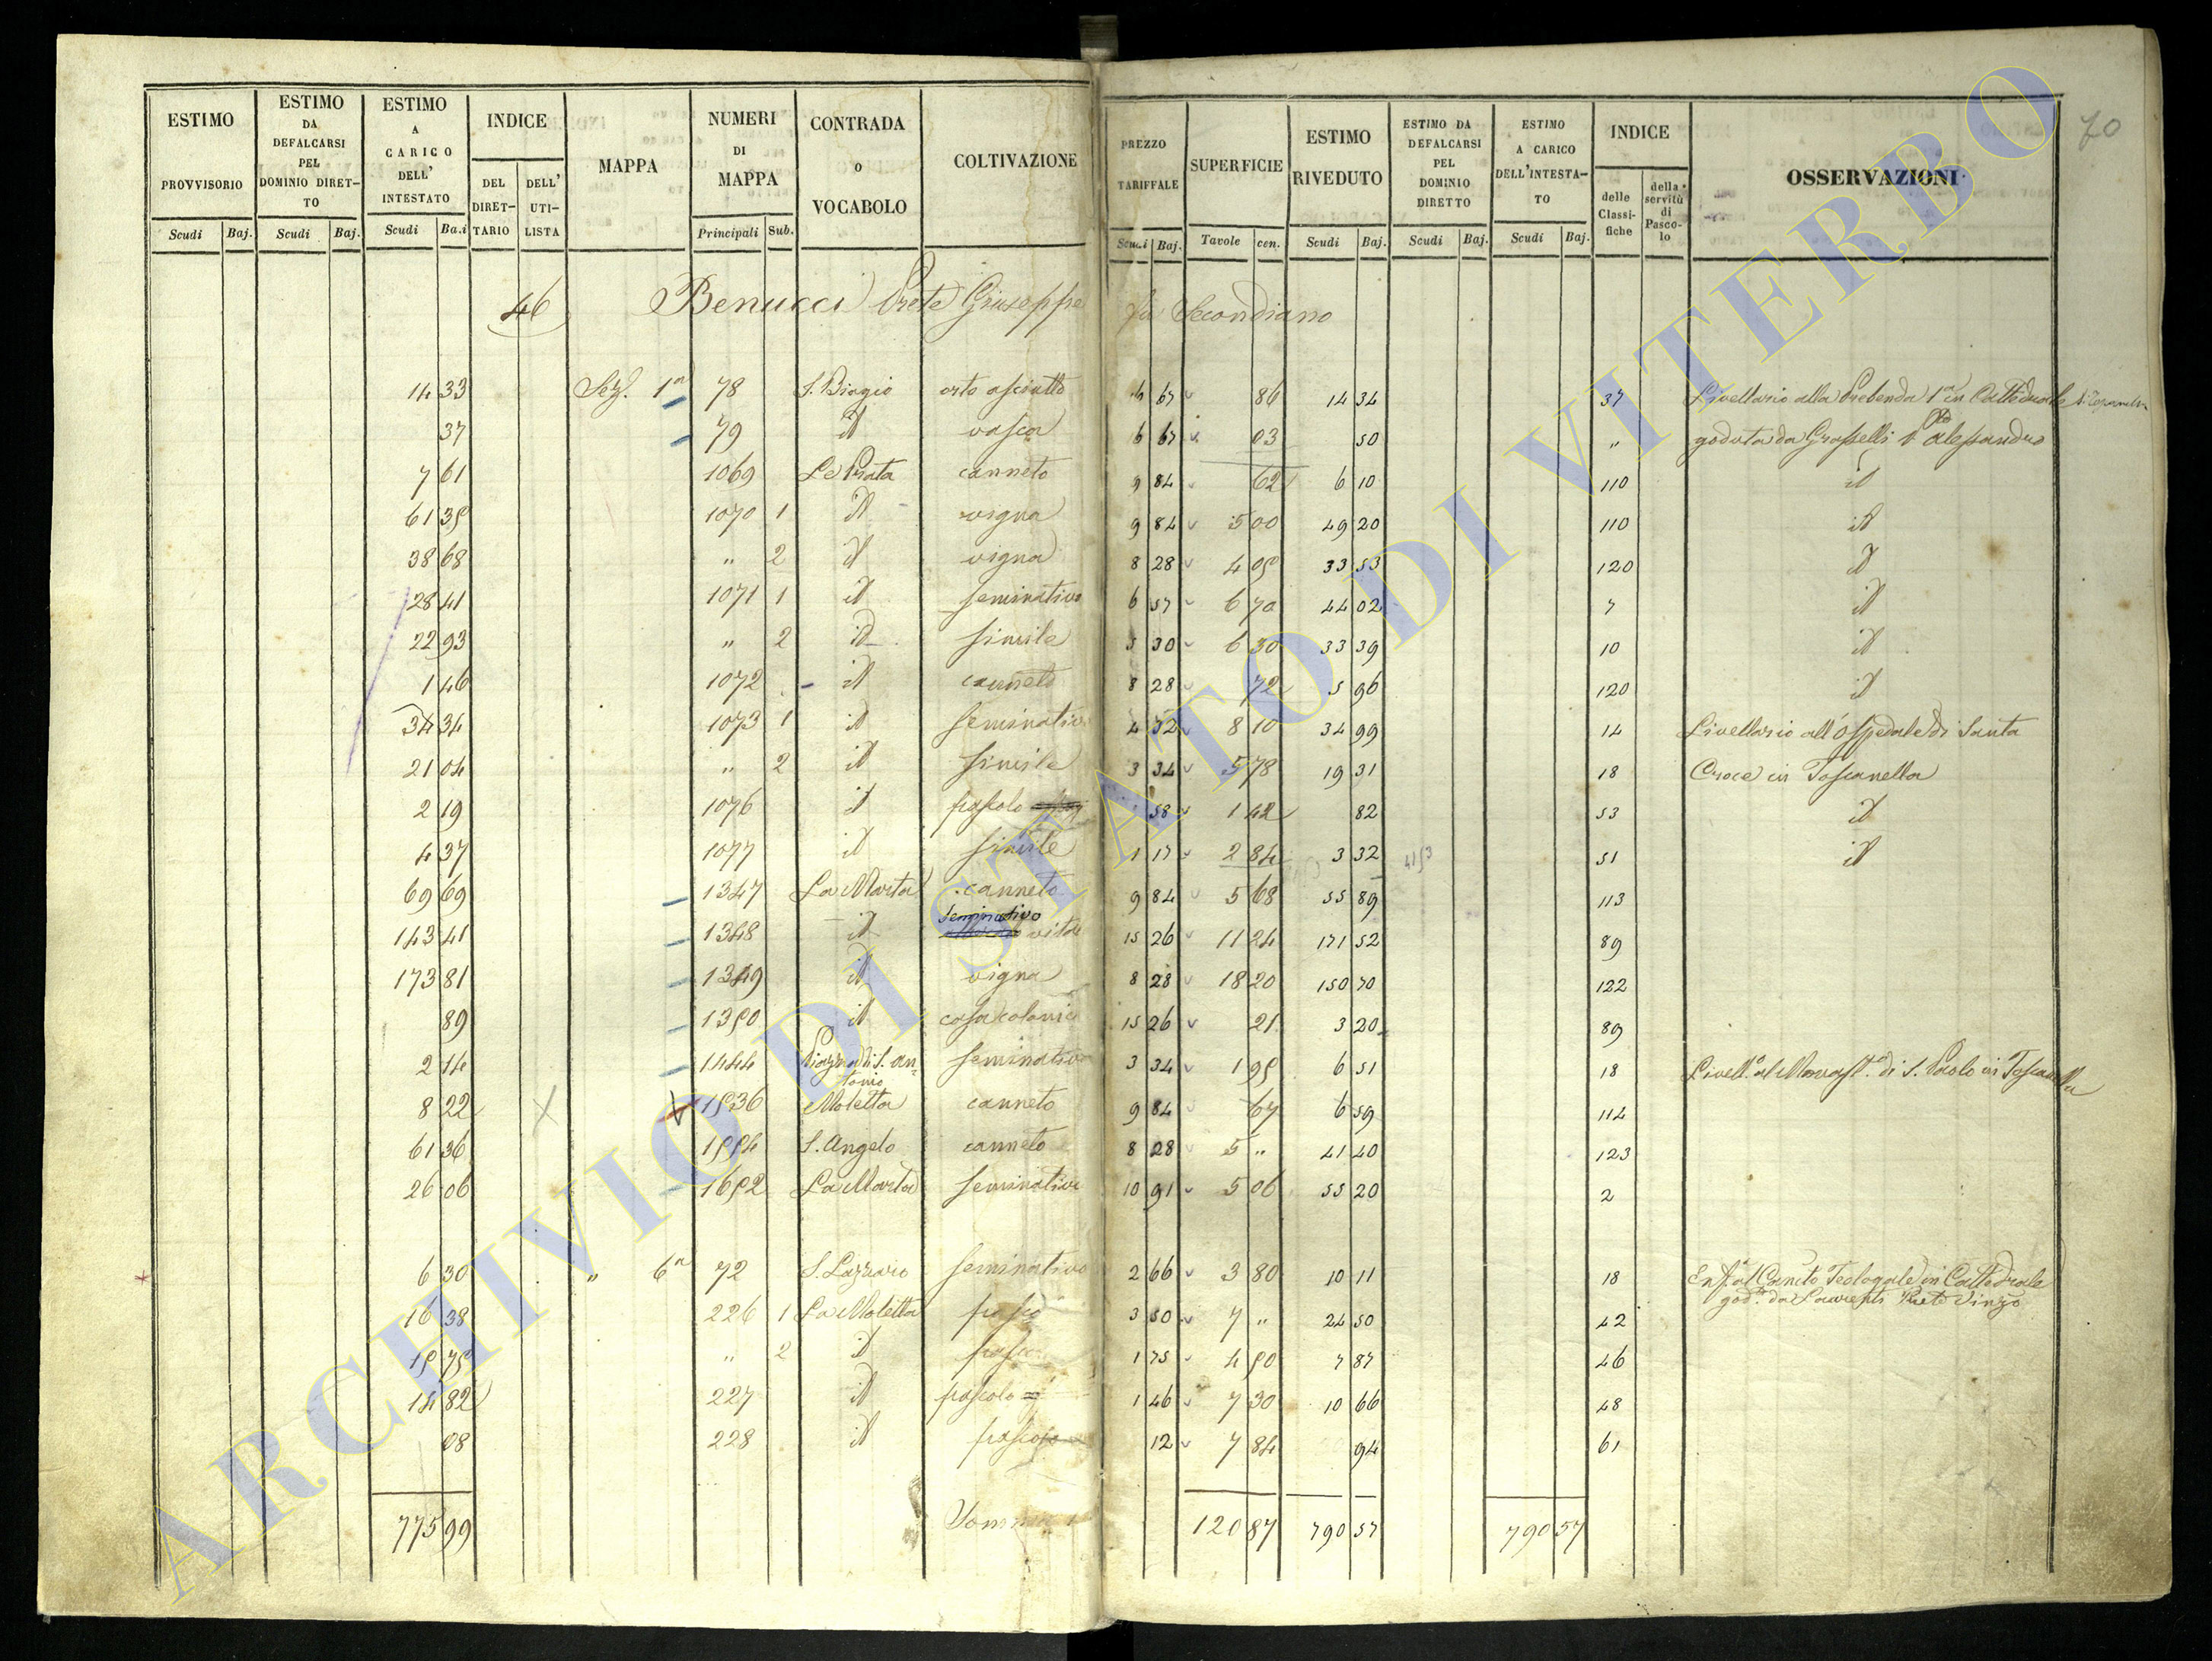 70
ESTIMO PROVVISORIO Scudi Baj.
ESTIMO DA DEFALCARSI PEL DOMINIO DIRET-TO Scudi Baj.
ESTIMO A CARICO DELL' INTESTATO Scudi Ba.i
INDICE DEL DIRET-TARIO DELL' UTI-LISTA
MAPPA
NUMERI DI MAPPA Principali Sub.
CONTRADA o VOCABOLO
COLTIVAZIONE
PREZZO TARIFFALE Scudi Baj.
SUPERFICIE Tavole cen.
ESTIMO RIVEDUTO Scudi Baj.
ESTIMO DA DEFALCARSI PEL DOMINIO DIRETTO Scudi Baj.
ESTIMO A CARICO DELL'INTESTA-TO Scudi Baj.
INDICE delle Classi-fiche della servitù di Pasco-lo
OSSERVAZIONI
46 Benucci Prete Giuseppe fu Secondiano
14 33 Sez. 1a 78 S. Biagio orto asciutto 6 67 86 14 34 37 Livellario alla Prebenda 1a in Cattedrale di
37 79 id vasca 6 67 03 50 " goduta da Grasselli Alessandro
7 61 1069 Le Prata canneto 9 84 62 6 10 110 id
61 35 1070 1 id vigna 9 84 5 00 49 20 110 id
38 68 " 2 id vigna 8 28 4 05 33 53 120 id
28 41 1071 1 id seminativo 6 57 6 70 44 02 7 id
22 93 " 2 id simile 5 30 6 30 33 39 10 id
1 46 1072 id canneto 8 28 72 5 96 120 id
34 34 1073 1 id seminativo 4 32 8 10 34 99 14 Livellario all'Ospedale di Santa
21 04 " 2 id simile 3 34 5 78 19 31 18 Croce in Toscanella
2 19 1076 id pascolo 58 1 42 82 53 id
4 37 1077 id simile 1 17 2 84 3 32 51 id
69 69 1347 La Marta canneto 9 84 5 68 55 89 113
143 41 1348 id seminativo vitato 15 26 11 24 171 52 89
173 81 1349 id vigna 8 28 18 20 150 70 122
89 1350 id casa colonica 15 26 21 3 20 89
2 14 1444 Piazza di S. Antonio seminativo 3 34 1 95 6 51 18 Livell.o al Monast.o di S. Paolo in Toscanella
8 22 1536 Moletta canneto 9 84 67 6 59 114
61 36 1554 S. Angelo canneto 8 28 5 " 41 40 123
26 06 1652 La Marta seminativo 10 91 5 06 55 20 2
6 30 " 6a 72 S. Lazzaro seminativo 2 66 3 80 10 11 18 Enf.a al Can.to Teologale in Cattedrale
god.a da Laurenti Prete Vinzo
16 38 226 1 La Moletta pascolo 3 50 7 " 24 50 42
15 75 " 2 id pascolo 1 75 4 50 7 87 46
14 82 227 id pascolo 1 46 7 30 10 66 48
08 228 id pascolo 12 7 84 94 61
775 99 Somma 120 87 790 57 790 57
ARCHIVIO DI STATO DI VITERBO